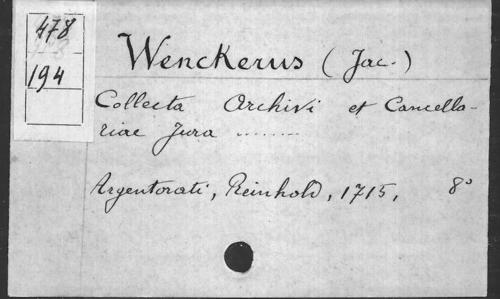 478
194
Wenckerus (Jac.)
Collecta Archivi et Cancella-
riae Jura ........
Argentorati, Reinhold, 1715, 8°